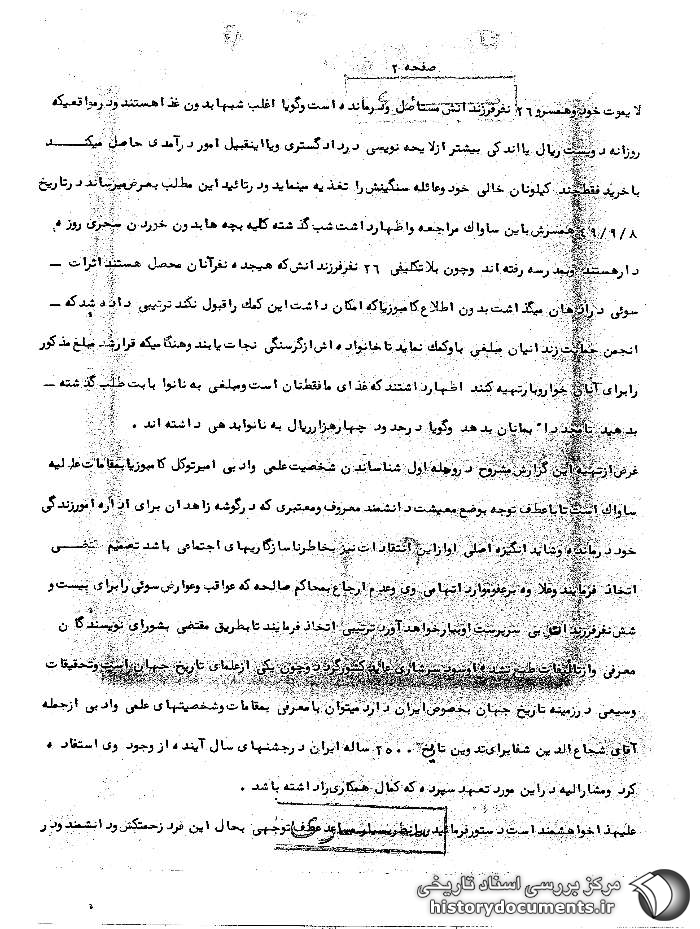 صفحه ۲
لا یموت خود و همسر و ۲۶ نفر فرزندانش مستأصل و درمانده است و گویا اغلب شبها بدون غذا هستند و در مواقعیکه
روزانه دویست ریال یا اندکی بیشتر از لایحه نویسی در دادگستری و یا اینقبیل امور درآمدی حاصل میکند
با خرید فقط چند کیلو نان خالی خود و عائله سنگینش را تغذیه مینماید و در تائید این مطلب بعرض میرساند در تاریخ
۴۹/۹/۸ همسرش باین ساواک مراجعه و اظهار داشت شب گذشته کلیه بچه ها بدون خوردن سحری روزه
دار هستند و بمدرسه رفته اند و چون بلاتکلیفی ۲۶ نفر فرزندانش که هیجده نفر آنان محصل هستند اثرات ــ
سوئی در اذهان میگذاشت بدون اطلاع کامبوزیا که امکان داشت این کمک را قبول نکند ترتیبی داده شد که ــ
انجمن حمایت زندانیان مبلغی باو کمک نماید تا خانواده اش از گرسنگی نجات یابند و هنگامیکه قرار شد مبلغ مذکور
را برای آنان خواروبار تهیه کنند اظهار داشتند که غذای ما فقط نان است و مبلغی به نانوا بابت طلب گذشته ــ
بدهید تا مجدداً بمانان بدهد و گویا در حدود چهار هزار ریال به نانوا بدهی داشته اند .
غرض از تهیه این گزارش مشروح در وهله اول شناساندن شخصیت علمی و ادبی امیر توکل کامبوزیا بمقامات عالیه
ساواک است تا با عطف توجه بوضع معیشت دانشمند معروف و معتبری که در گوشه زاهدان برای اداره امور زندگی
خود درمانده و شاید انگیزه اصلی او از این انتقادات نیز بخاطر ناسازگاریهای اجتماعی باشد تصمیم مقتضی
اتخاذ فرمایند و علاوه بر عفو موارد اتهامی وی و عدم ارجاع بمحاکم صالحه که عواقب و عوارض سوئی را برای بیست و
شش نفر فرزندان بی سرپرست او ببار خواهد آورد ترتیبی اتخاذ فرمایند تا بطریق مقتضی بشورای نویسندگان
معرفی و از تالیفات طبع نشده او سود سرشاری عاید کشور گردد و چون یکی از علمای تاریخ جهان است و تحقیقات
وسیعی در زمینه تاریخ جهان بخصوص ایران دارد میتوان با معرفی بمقامات و شخصیتهای علمی و ادبی از جمله
آقای شجاع الدین شفا برای تدوین تاریخ ۲۵۰۰ ساله ایران در جشنهای سال آینده از وجود وی استفاده
کرد و مشارالیه در این مورد تعهد سپرده که کمال همکاری را داشته باشد .
علیهذا خواهشمند است دستور فرمائید توجهی بحال این فرد زحمتکش و دانشمند و در
مرکز بررسی اسناد تاریخی
historydocuments.ir